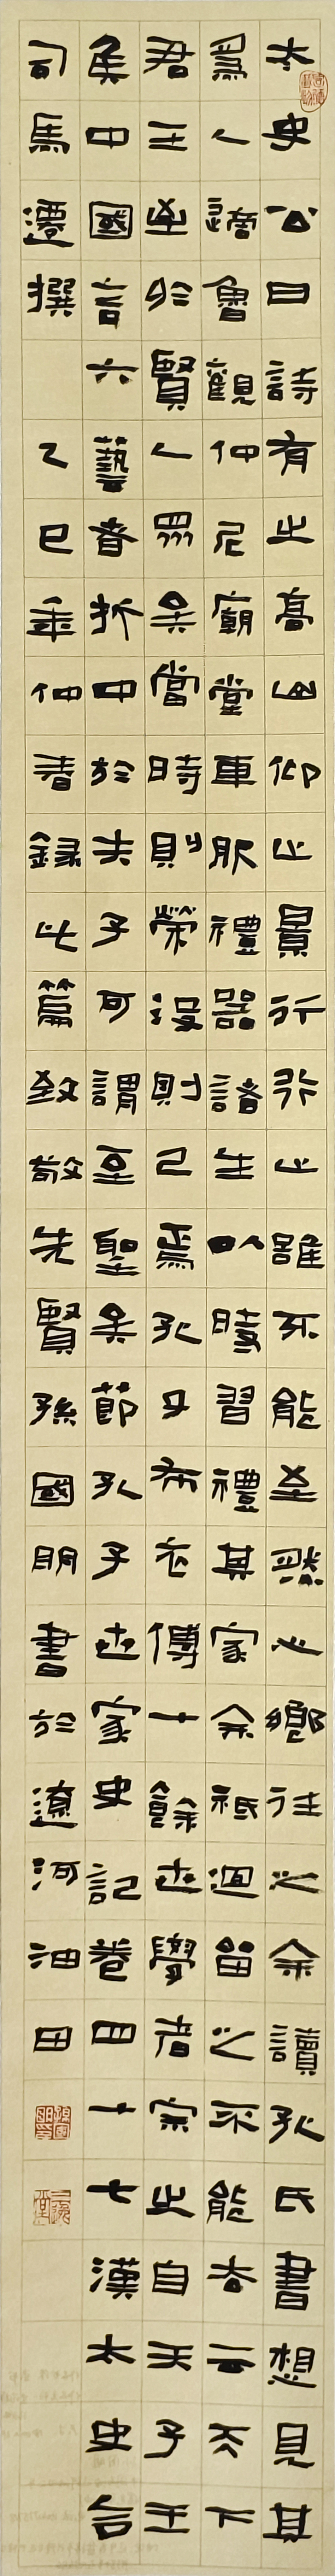 太史公曰詩有之高山仰止景行行止雖不能至然心鄉往之余讀孔氏書想見其
爲人適魯觀仲尼廟堂車服禮器諸生以時習禮其家余祗迴留之不能去云天下
君王至於賢人眾矣當時則榮沒則已焉孔子布衣傳十餘世學者宗之自天子王
侯中國言六藝者折中於夫子可謂至聖矣節孔子世家史記卷四十七漢太史令
司馬遷撰 乙巳年仲春録此篇致敬先賢孫國朋書於遼河油田